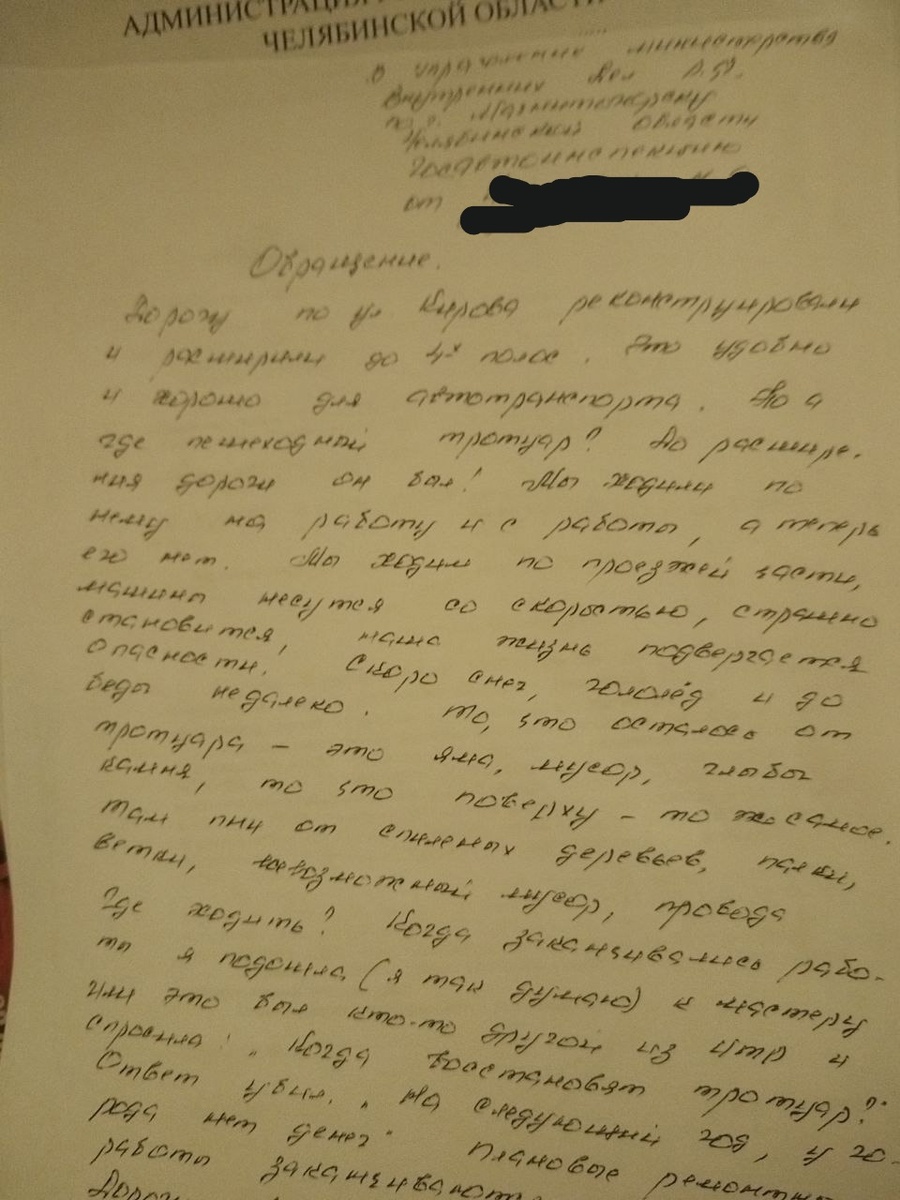 АДМИНИСТРАЦИЯ
ЧЕЛЯБИНСКОЙ ОБЛАСТИ
в управление министерства
Внутренних Дел Р.Ф.
по г. Магнитогорску
Челябинской области
Госавтоинспекцию
от
Обращение.
Дорогу по ул Кирова реконструировали
и расширили до 4-х полос. Это удобно
и хорошо для автотранспорта. Но а
где пешеходный тротуар? До расшире-
ния дороги он был! Мы ходили по
нему на работу и с работы, а теперь
его нет. Мы ходим по проезжей части,
машины несутся со скоростью, страшно
становится, наша жизнь подвергается
опасности. Скоро снег, гололёд и до
беды недалеко. То, что осталось от
тротуара – это яма, мусор, глыбы
камня, то что поверху – то же самое.
Там пни от спиленых деревьев, палки,
ветки, всевозможный мусор, провода
Где ходить? Когда заканчивались рабо-
ты я подошла (я так думаю) к мастеру
или это был кто-то другой из ИТР и
спросила: „Когда восстановят тротуар?"
Ответ убил. „На следующий год, у го-
рода нет денег" Плановые ремонтные
работы заканчиваются